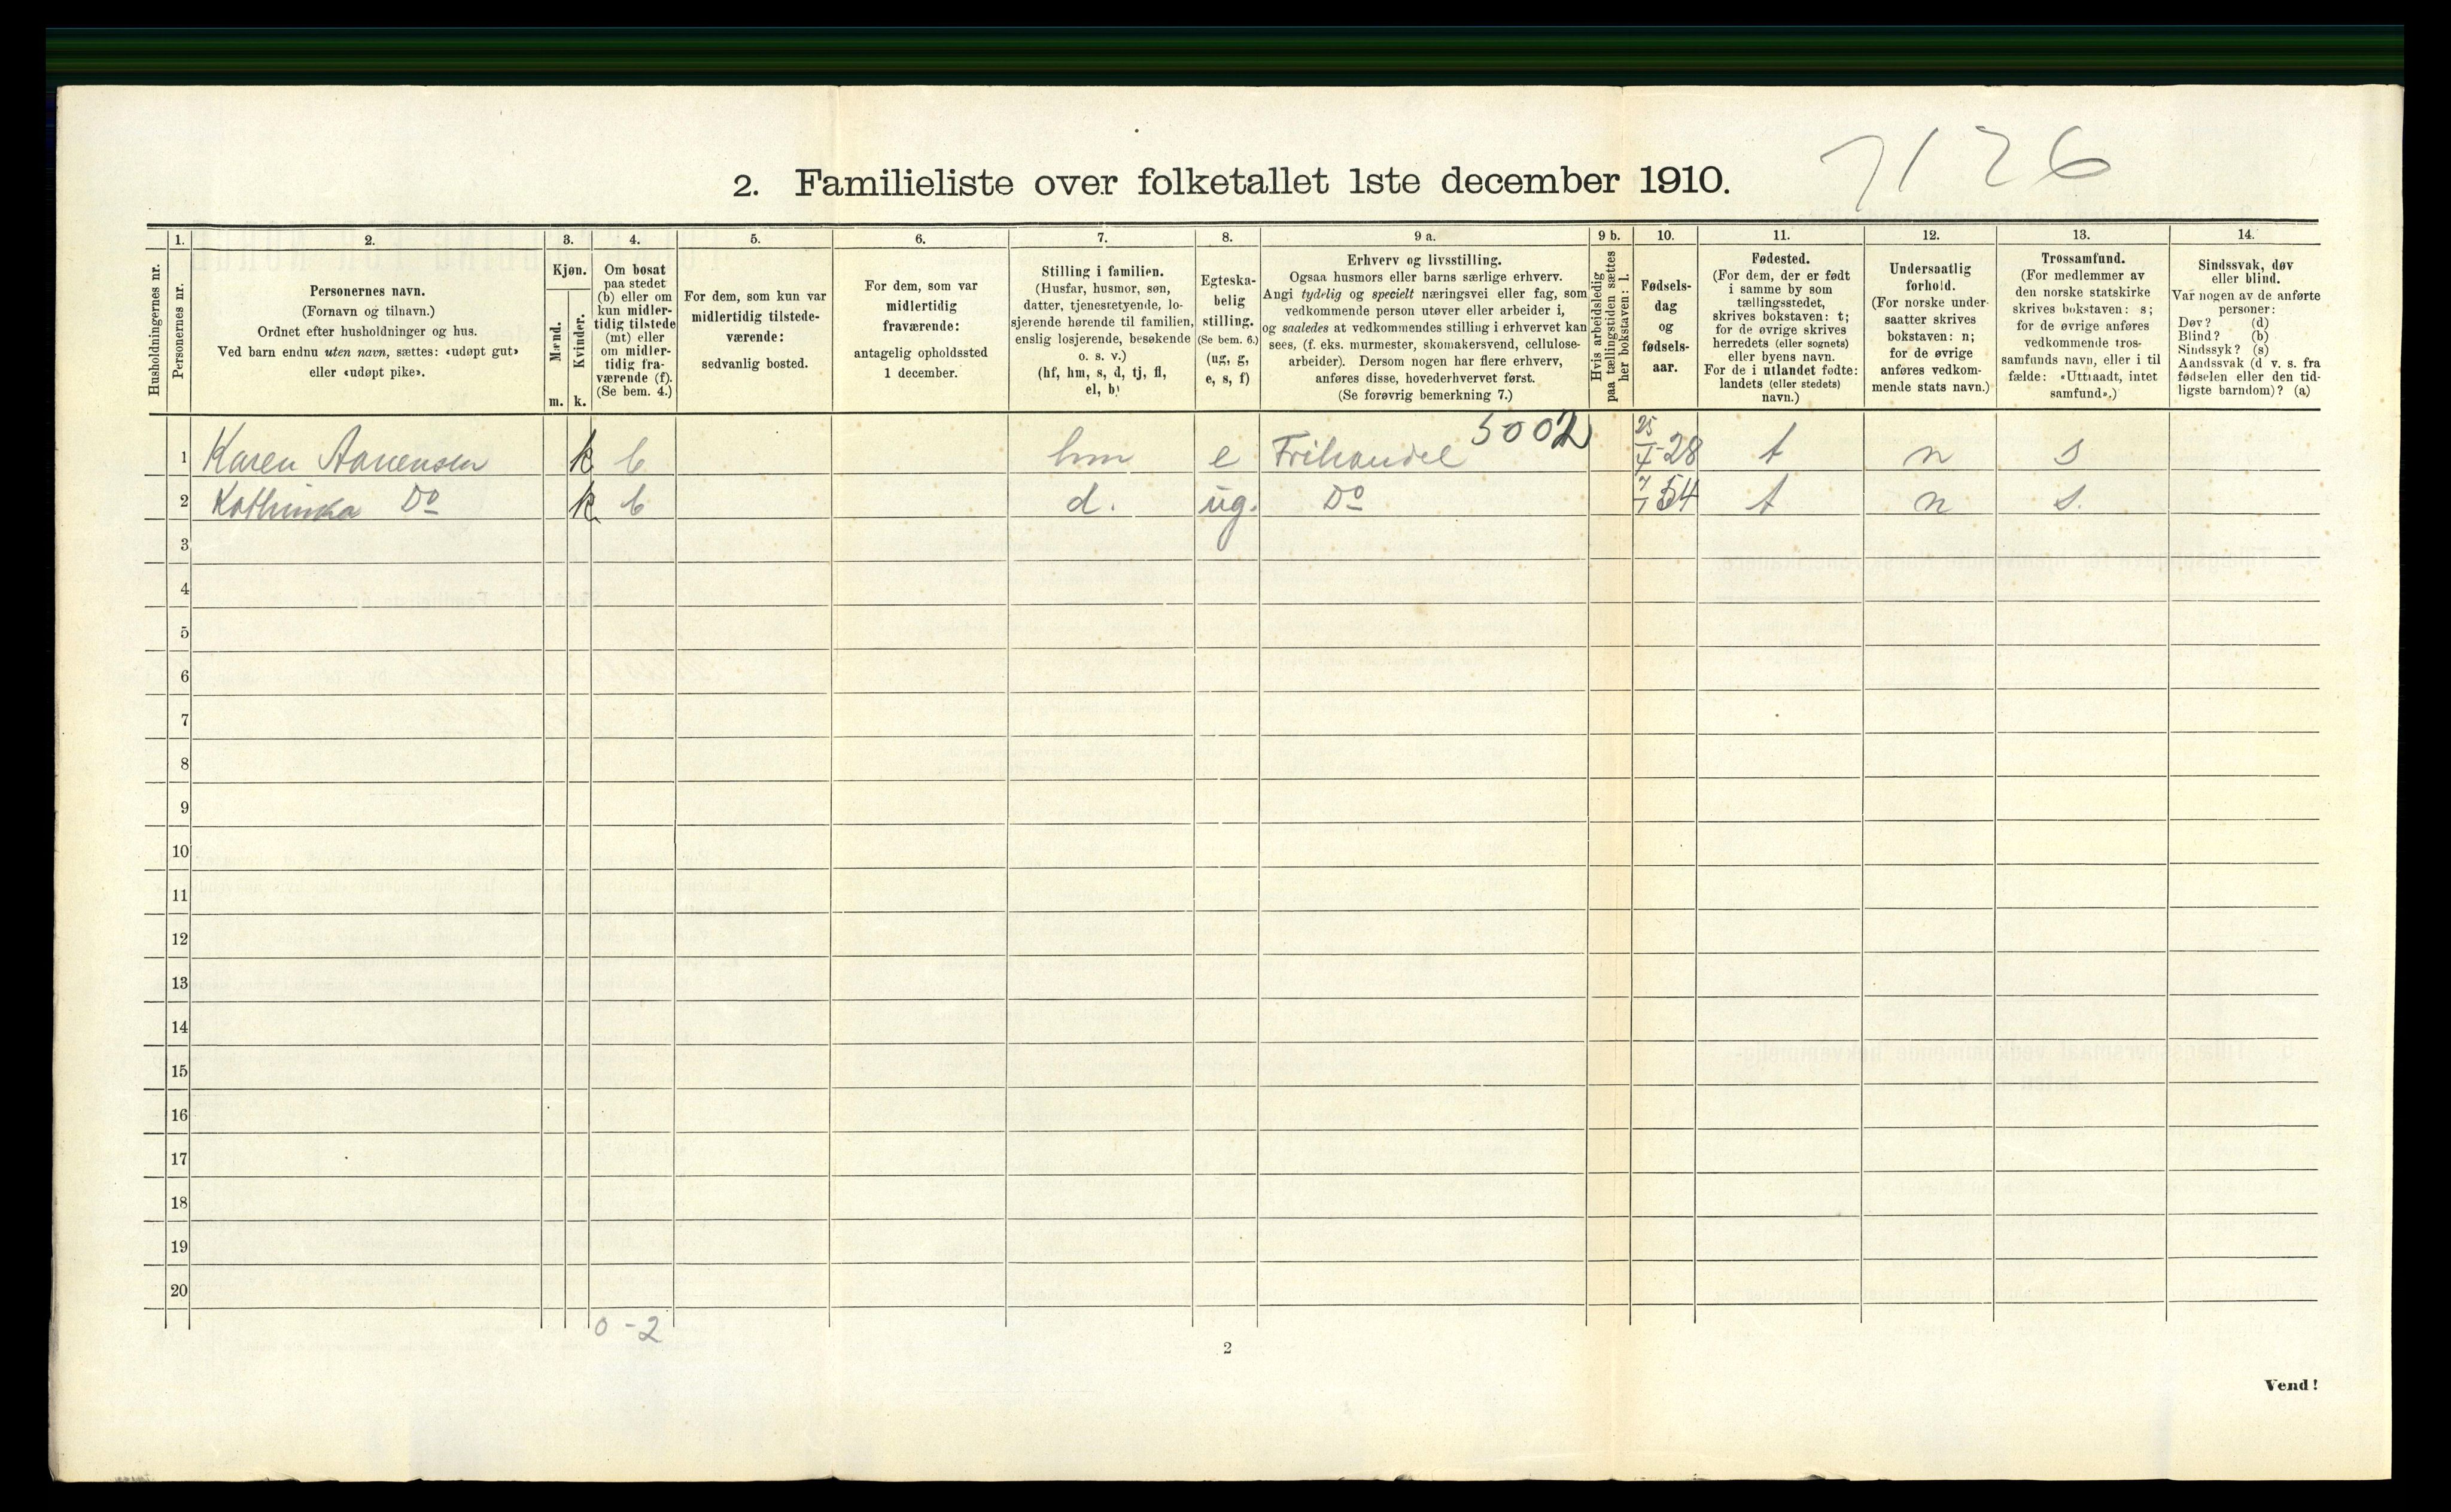 7126
2. Familieliste over folketallet 1ste december 1910.
Husholdningernes nr.
1. Personernes nr.
2.
Personernes navn.
(Fornavn og tilnavn.)
Ordnet efter husholdninger og hus.
Ved barn endnu uten navn, sættes: «udøpt gut»
eller «udøpt pike».
3.
Kjøn.
Mænd.
Kvinder.
m. k.
4.
Om bosat
paa stedet
(b) eller om
kun midler-
tidig tilstede
(mt) eller
om midler-
tidig fra-
værende (f).
(Se bem. 4.)
5.
For dem, som kun var
midlertidig tilstede-
værende:
sedvanlig bosted.
6.
For dem, som var
midlertidig
fraværende:
antagelig opholdssted
1 december.
7.
Stilling i familien.
(Husfar, husmor, søn,
datter, tjenestetyende, lo-
sjerende hørende til familien,
enslig losjerende, besøkende
o. s. v.)
(hf, hm, s, d, tj, fl,
el, b)
8.
Egteska-
belig
stilling.
(Se bem. 6.)
(ug, g,
e, s, f)
9 a.
Erhverv og livsstilling.
Ogsaa husmors eller barns særlige erhverv.
Angi tydelig og specielt næringsvei eller fag, som
vedkommende person utøver eller arbeider i,
og saaledes at vedkommendes stilling i erhvervet kan
sees, (f. eks. murmester, skomakersvend, cellulose-
arbeider). Dersom nogen har flere erhverv,
anføres disse, hovederhvervet først.
(Se forøvrig bemerkning 7.)
9 b.
Hvis arbeidsledig
paa tællingstiden sættes
her bokstaven: l.
10.
Fødsels-
dag
og
fødsels-
aar.
11.
Fødested.
(For dem, der er født
i samme by som
tællingsstedet,
skrives bokstaven: t;
for de øvrige skrives
herredets (eller sognets)
eller byens navn.
For de i utlandet fødte:
landets (eller stedets)
navn.)
12.
Undersaatlig
forhold.
(For norske under-
saatter skrives
bokstaven: n;
for de øvrige
anføres vedkom-
mende stats navn.)
13.
Trossamfund.
(For medlemmer av
den norske statskirke
skrives bokstaven: s;
for de øvrige anføres
vedkommende tros-
samfunds navn, eller i til
fælde: «Uttraadt, intet
samfund».)
14.
Sindssvak, døv
eller blind.
Var nogen av de anførte
personer:
Døv? (d)
Blind? (b)
Sindssyk? (s)
Aandssvak (d v. s. fra
fødselen eller den tid-
ligste barndom)? (a)
1 Karen Aanensen k b hm e Frihandel 5002 25/4-28 t n s
2 Kathinka Do k b d. ug. Do 7/1 54 t n s.
3
4
5
6
7
8
9
10
11
12
13
14
15
16
17
18
19
20
0 - 2
2
Vend!